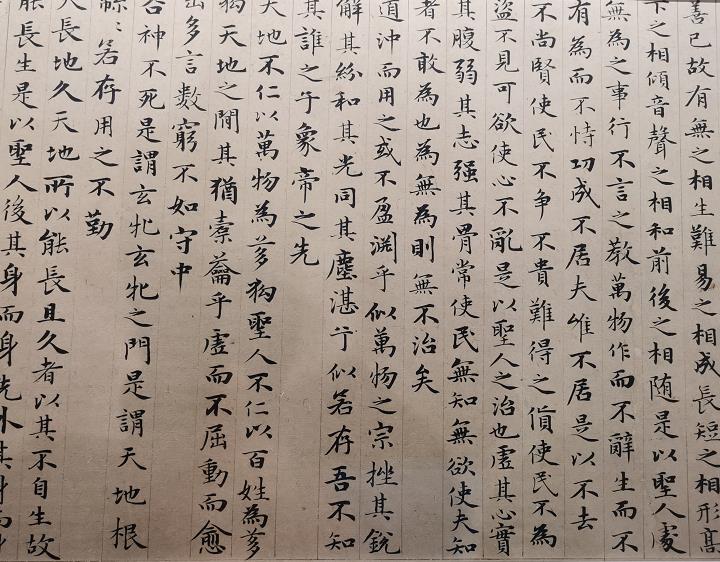 善已故有無之相生難易之相成長短之相形髙
下之相傾音聲之相和前後之相随是以聖人處
無為之事行不言之教萬物作而不辭生而不
有為而不恃功成不居夫唯不居是以不去
不尚賢使民不争不貴難得之貨使民不為
盜不見可欲使心不亂是以聖人之治也虛其心實
其腹弱其志强其骨常使民無知無欲使夫知
者不敢為也為無為則無不治矣
道沖而用之或不盈淵乎似萬物之宗挫其銳
解其紛和其光同其塵湛兮似若存吾不知
其誰之子象帝之先
天地不仁以萬物為芻狗聖人不仁以百姓為芻
狗天地之間其猶橐籥乎虛而不屈動而愈
出多言數窮不如守中
谷神不死是謂玄牝玄牝之門是謂天地根
綿綿若存用之不勤
天長地久天地所以能長且久者以其不自生故
能長生是以聖人後其身而身先外其身而身